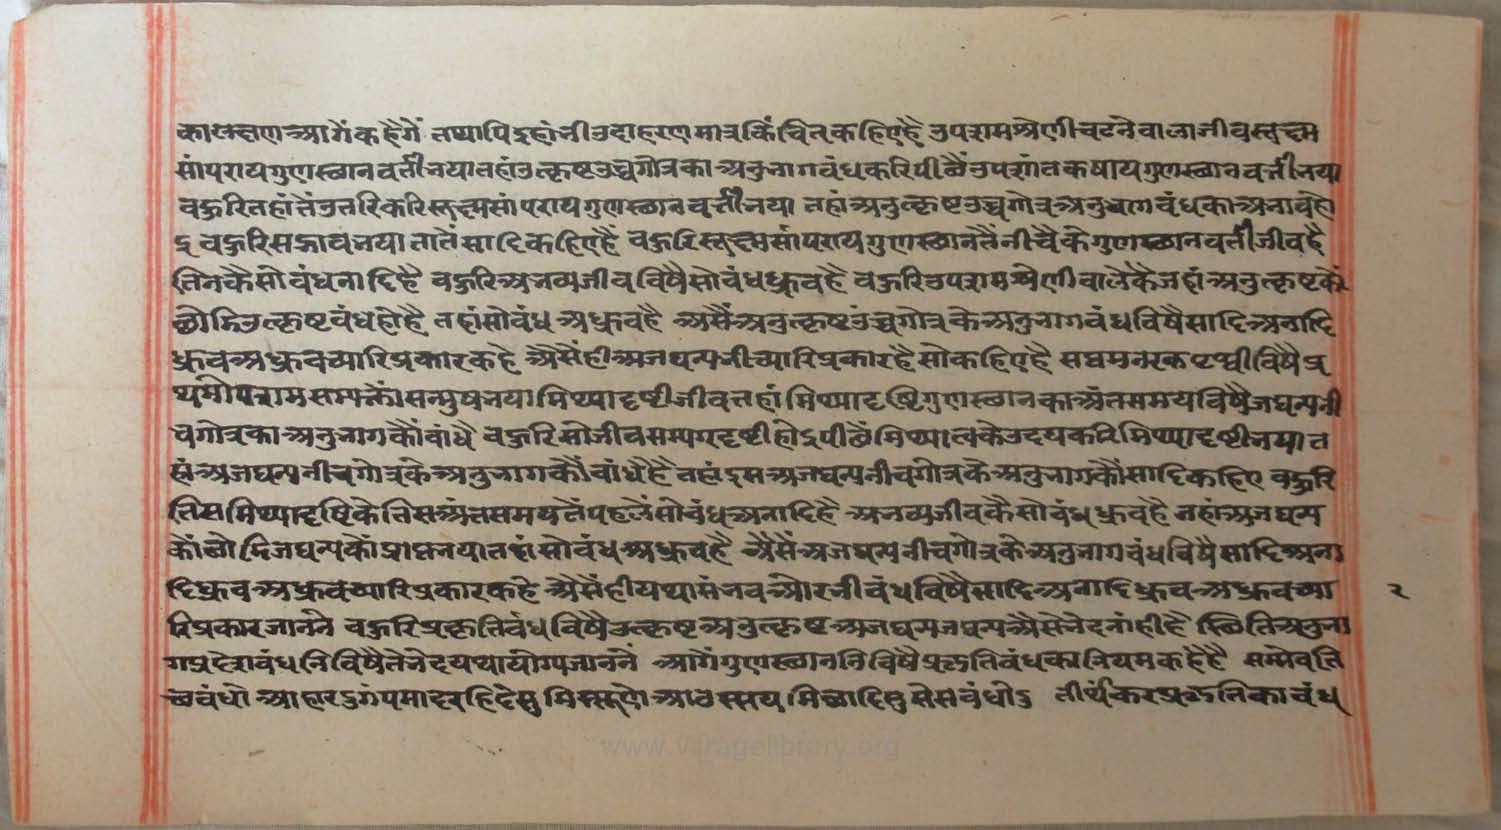 का लक्षण आगैं कहैगें तथापि इहां भी उदाहरण मात्र किंचित कहिए है उपशमश्रेणी चढनेवाला जीव सूक्ष्म
सांपराय गुणस्थानवर्ती भया तहां उत्कृष्ट उच्चगोत्र का अनुभागबंध करि पीछैं उपशांतकषाय गुणस्थानवर्ती भया
बहुरि तहां तैं उतरि करि सूक्ष्मसांपराय गुणस्थानवर्ती भया तहां अनुत्कृष्ट उच्चगोत्र अनुभागबंध का अभाव हो
इ बहुरि सद्भाव भया तातैं सादि कहिए है बहुरि सूक्ष्मसांपराय गुणस्थान तैं नीचै के गुणस्थानवर्ती जीव है
तिनकै सो बंध अनादि है बहुरि अभव्य जीव विषै सो बंध ध्रुव है बहुरि उपशमश्रेणी वाले कै जहां अनुत्कृष्ट कौं
छोडि उत्कृष्ट बंध हो है तहां सो बंध अध्रुव है अैसैं अनुत्कृष्ट उच्चगोत्र के अनुभागबंध विषै सादि अनादि
ध्रुव अध्रुव च्यारि प्रकार कहे अैसैं ही अजघन्य भी च्यारि प्रकार है सो कहिए है सप्तम नरक पृथ्वी विषै प्र
थमोपशम सम्यक्त्व कौं सन्मुख भया मिथ्यादृष्टी जीव तहां मिथ्यादृष्टि गुणस्थान का अंत समय विषै जघन्य नी
चगोत्र का अनुभाग कौं बांधै बहुरि सो जीव सम्यग्दृष्टी होइ पीछैं मिथ्यात्व के उदय करि मिथ्यादृष्टी भया त
हां अजघन्य नीचगोत्र के अनुभाग कौं बांधै है तहां इस अजघन्य नीचगोत्र के अनुभाग कौं सादि कहिए बहुरि
तिस मिथ्यादृष्टि के तिस अंत समय तैं पहलैं सो बंध अनादि है अभव्य जीव कै सो बंध ध्रुव है जहां अजघन्य
कौं छोडि जघन्य कौं प्राप्त भया तहां सो बंध अध्रुव है अैसैं अजघन्य नीचगोत्र के अनुभागबंध विषै सादि अना
दि ध्रुव अध्रुव च्यारि प्रकार कहे अैसैं ही यथासंभव और भी बंध विषै सादि अनादि ध्रुव अध्रुव च्या
रि प्रकार जाननै बहुरि प्रकृतिबंध विषै उत्कृष्ट अनुत्कृष्ट अजघन्य जघन्य अैसे भेद नांही है स्थिति अनुभा
ग प्रदेशबंधनि विषै ते भेद यथायोग्य जाननै आगैं गुणस्थाननि विषै प्रकृतिबंध का नियम कहै है सम्मेव ति
त्थबंधो आहारदुगं पमादरहिदेसु मिस्सूणे आउस्स य मिच्छादिसु सेसबंधो दु तीर्थंकर प्रकृति का बंध
२